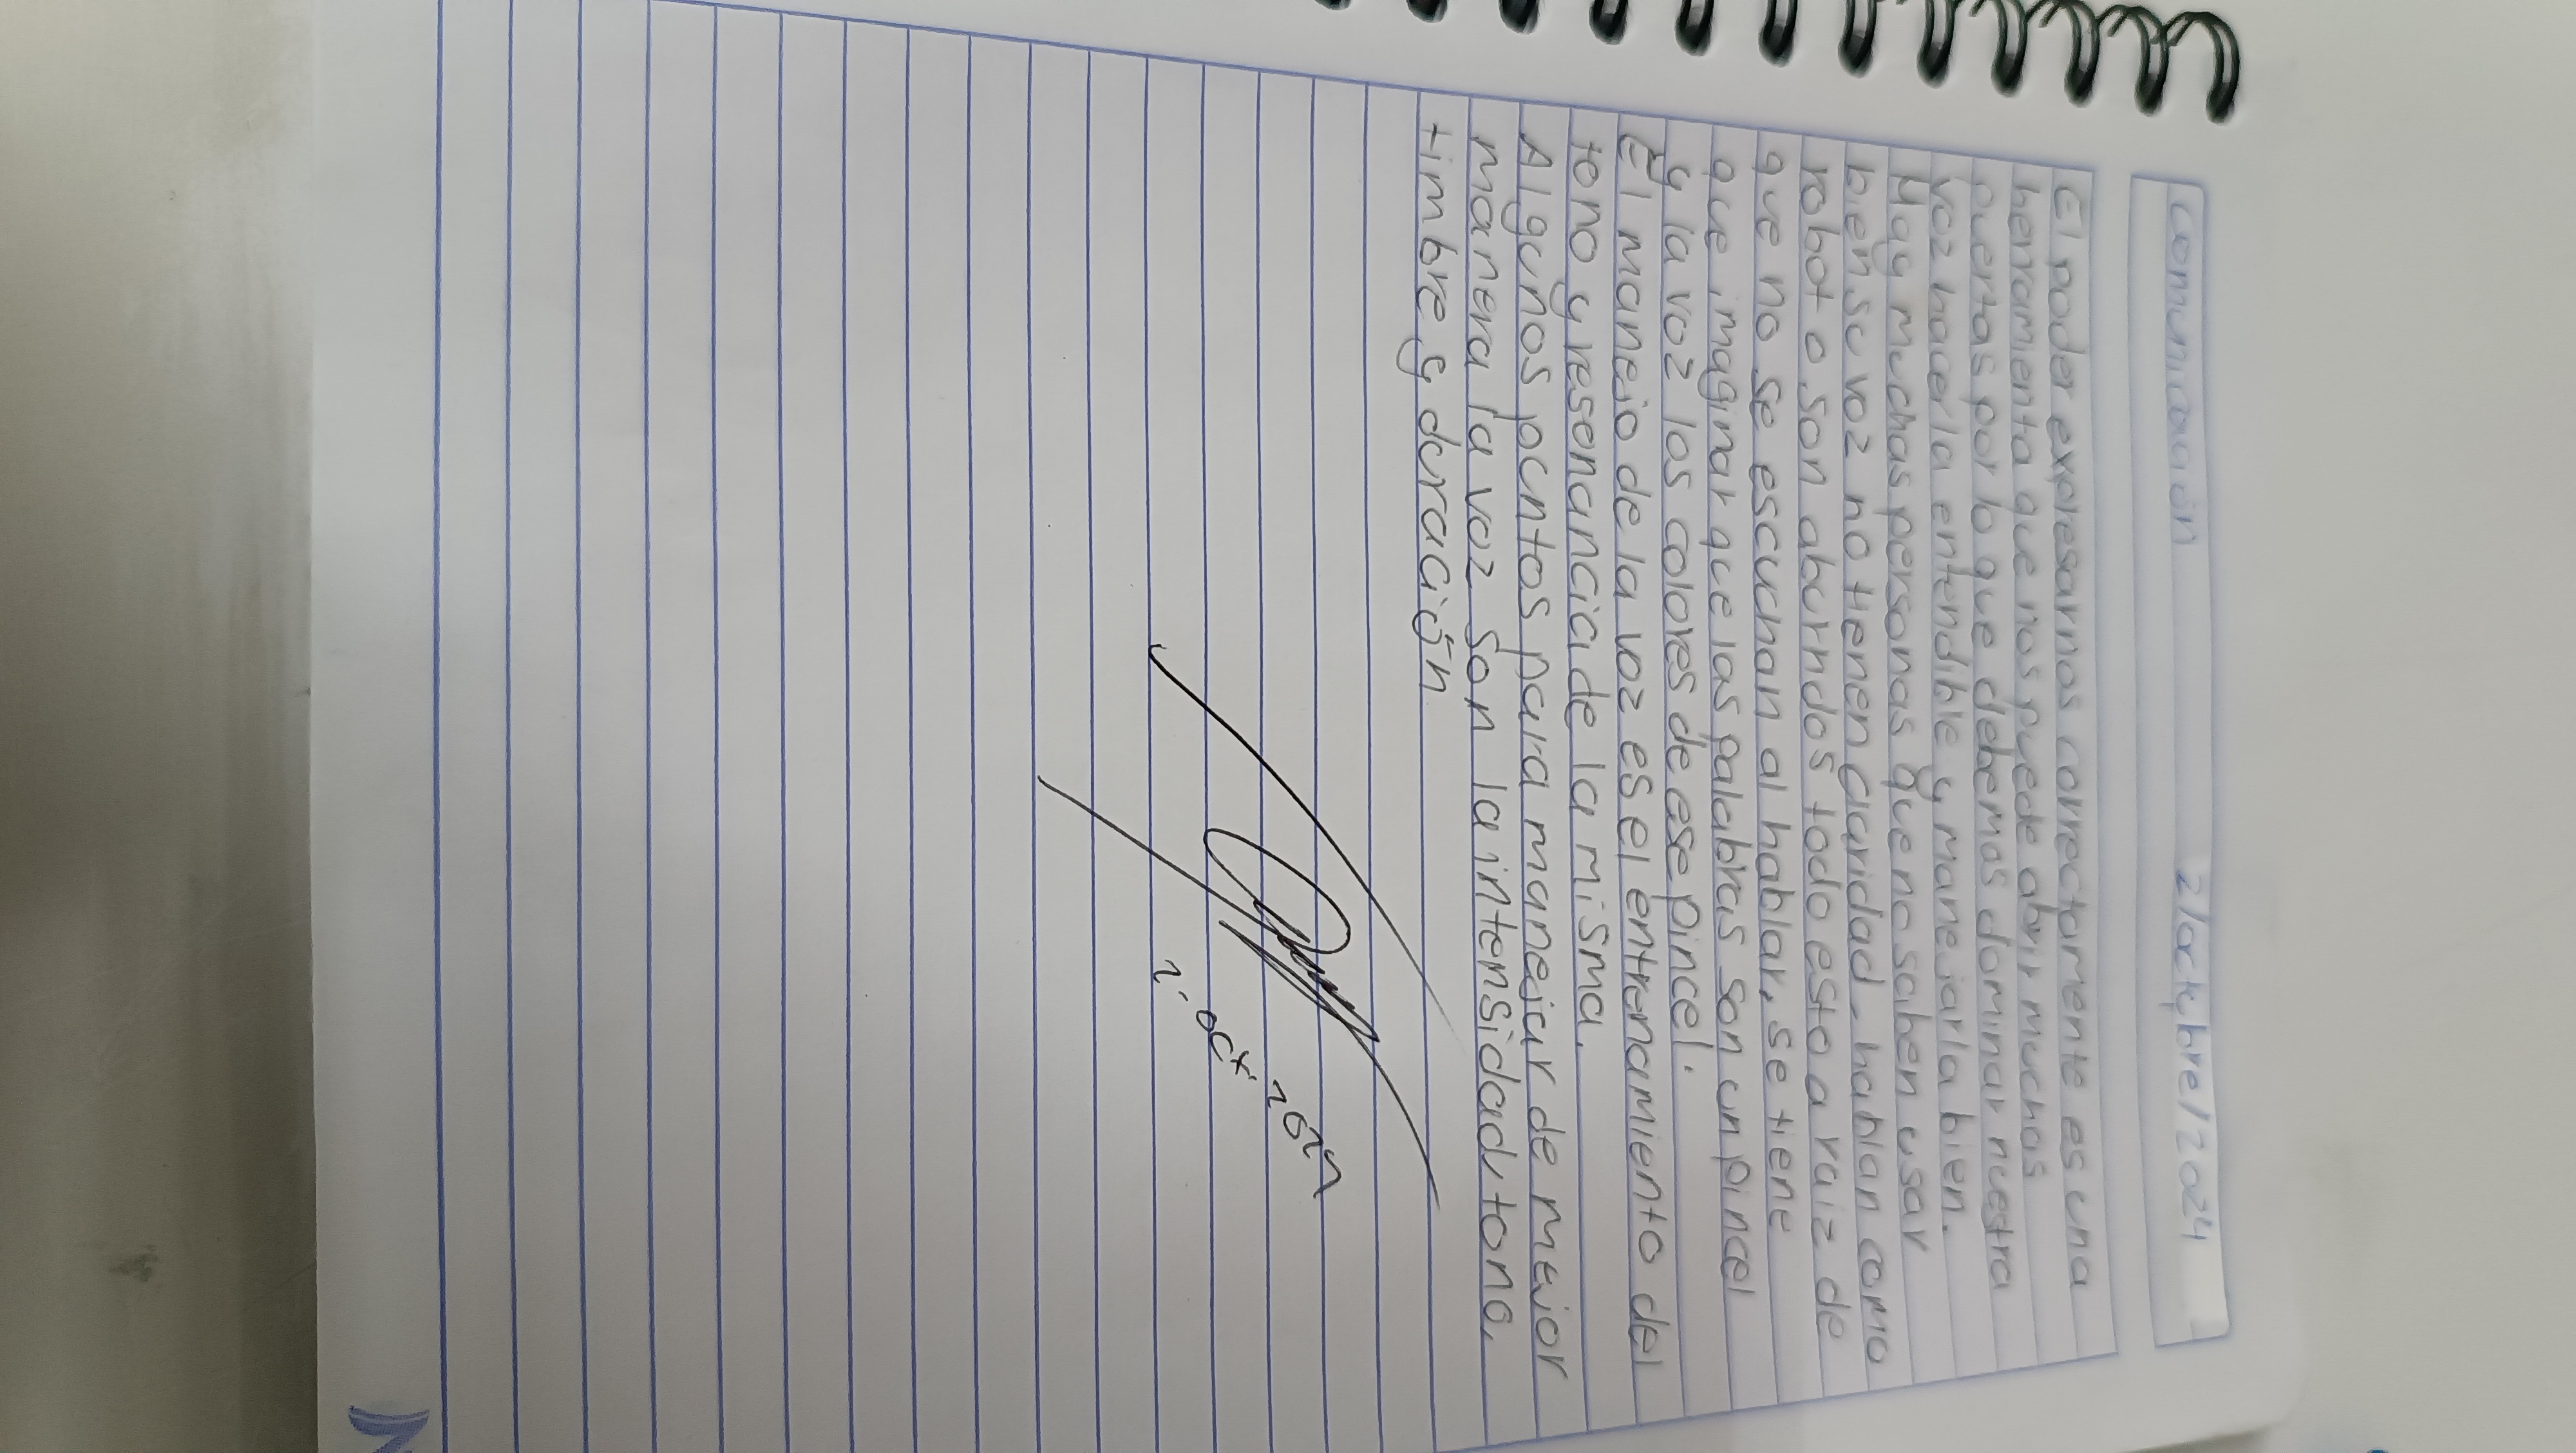 Comunicación 2/octubre/2024
El poder expresarnos correctamente es una
herramienta que nos puede abrir muchas
puertas por lo que debemos dominar nuestra
voz hacerla entendible y manejarla bien.
Hay muchas personas que no saben usar
bien su voz no tienen claridad, hablan como
robot o son aburridos todo esto a raiz de
que no se escuchan al hablar, se tiene
que imaginar que las palabras son un pincel
y la voz los colores de ese pincel.
El manejo de la voz es el entrenamiento del
tono y resonancia de la misma.
Algunos puntos para manejar de mejor
manera la voz son la intensidad, tono,
timbre y duración